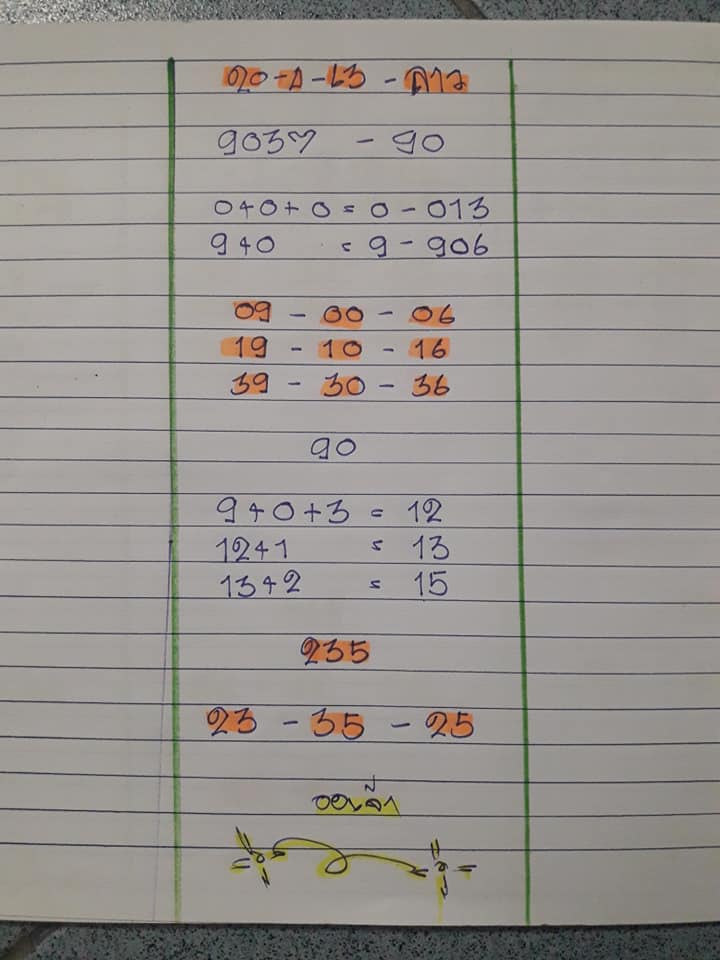 20-1-63 - ลาว
9037 - 90
0+0+0 = 0 - 013
9+0 = 9 - 906
09 - 00 - 06
19 - 10 - 16
39 - 30 - 36
90
9+0+3 = 12
12+1 = 13
13+2 = 15
235
23 - 35 - 25